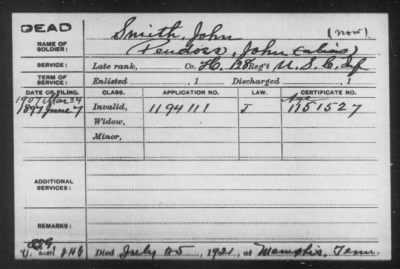 DEAD
Smith, John (now)
NAME OF SOLDIER:
Pendoss, John (alias)
SERVICE: Late rank, Co. H. 128 Reg't U.S.C. Inf
TERM OF SERVICE: Enlisted , 1 Discharged , 1
DATE OF FILING. CLASS. APPLICATION NO. LAW. CERTIFICATE NO.
1907 Mar 24 Age
1897 June 7 Invalid, 1194111 J 1151527
Widow,
Minor,
ADDITIONAL SERVICES:
REMARKS:
Died July 25, 1921, at Memphis, Tenn.